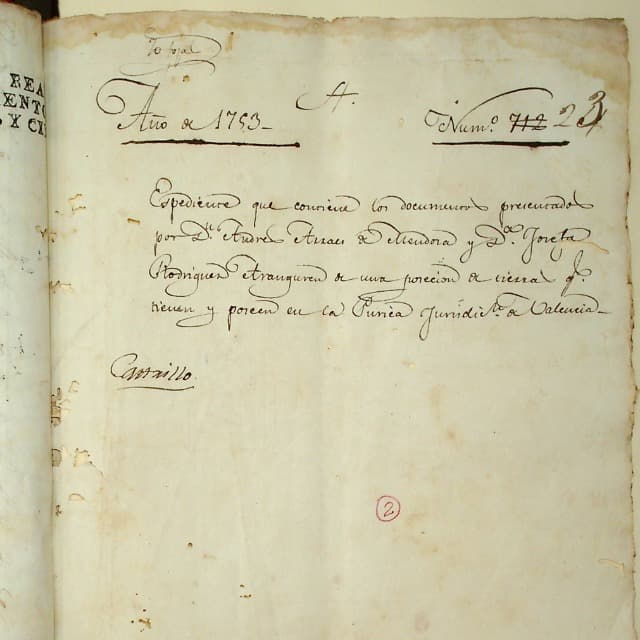 REA
ENTO
Y CI
A.
Año de 1753 -
Num.º 712 23
Expediente que contiene los documentos presentados
por D.ⁿ Andres Arraes de Mendoza y D.ª Josefa
Rodriguez Aranguren de una poseción de tierras q.ᵉ
tienen y poseen en la Jurisdic.ⁿ de Valencia -
Castrillo.
2